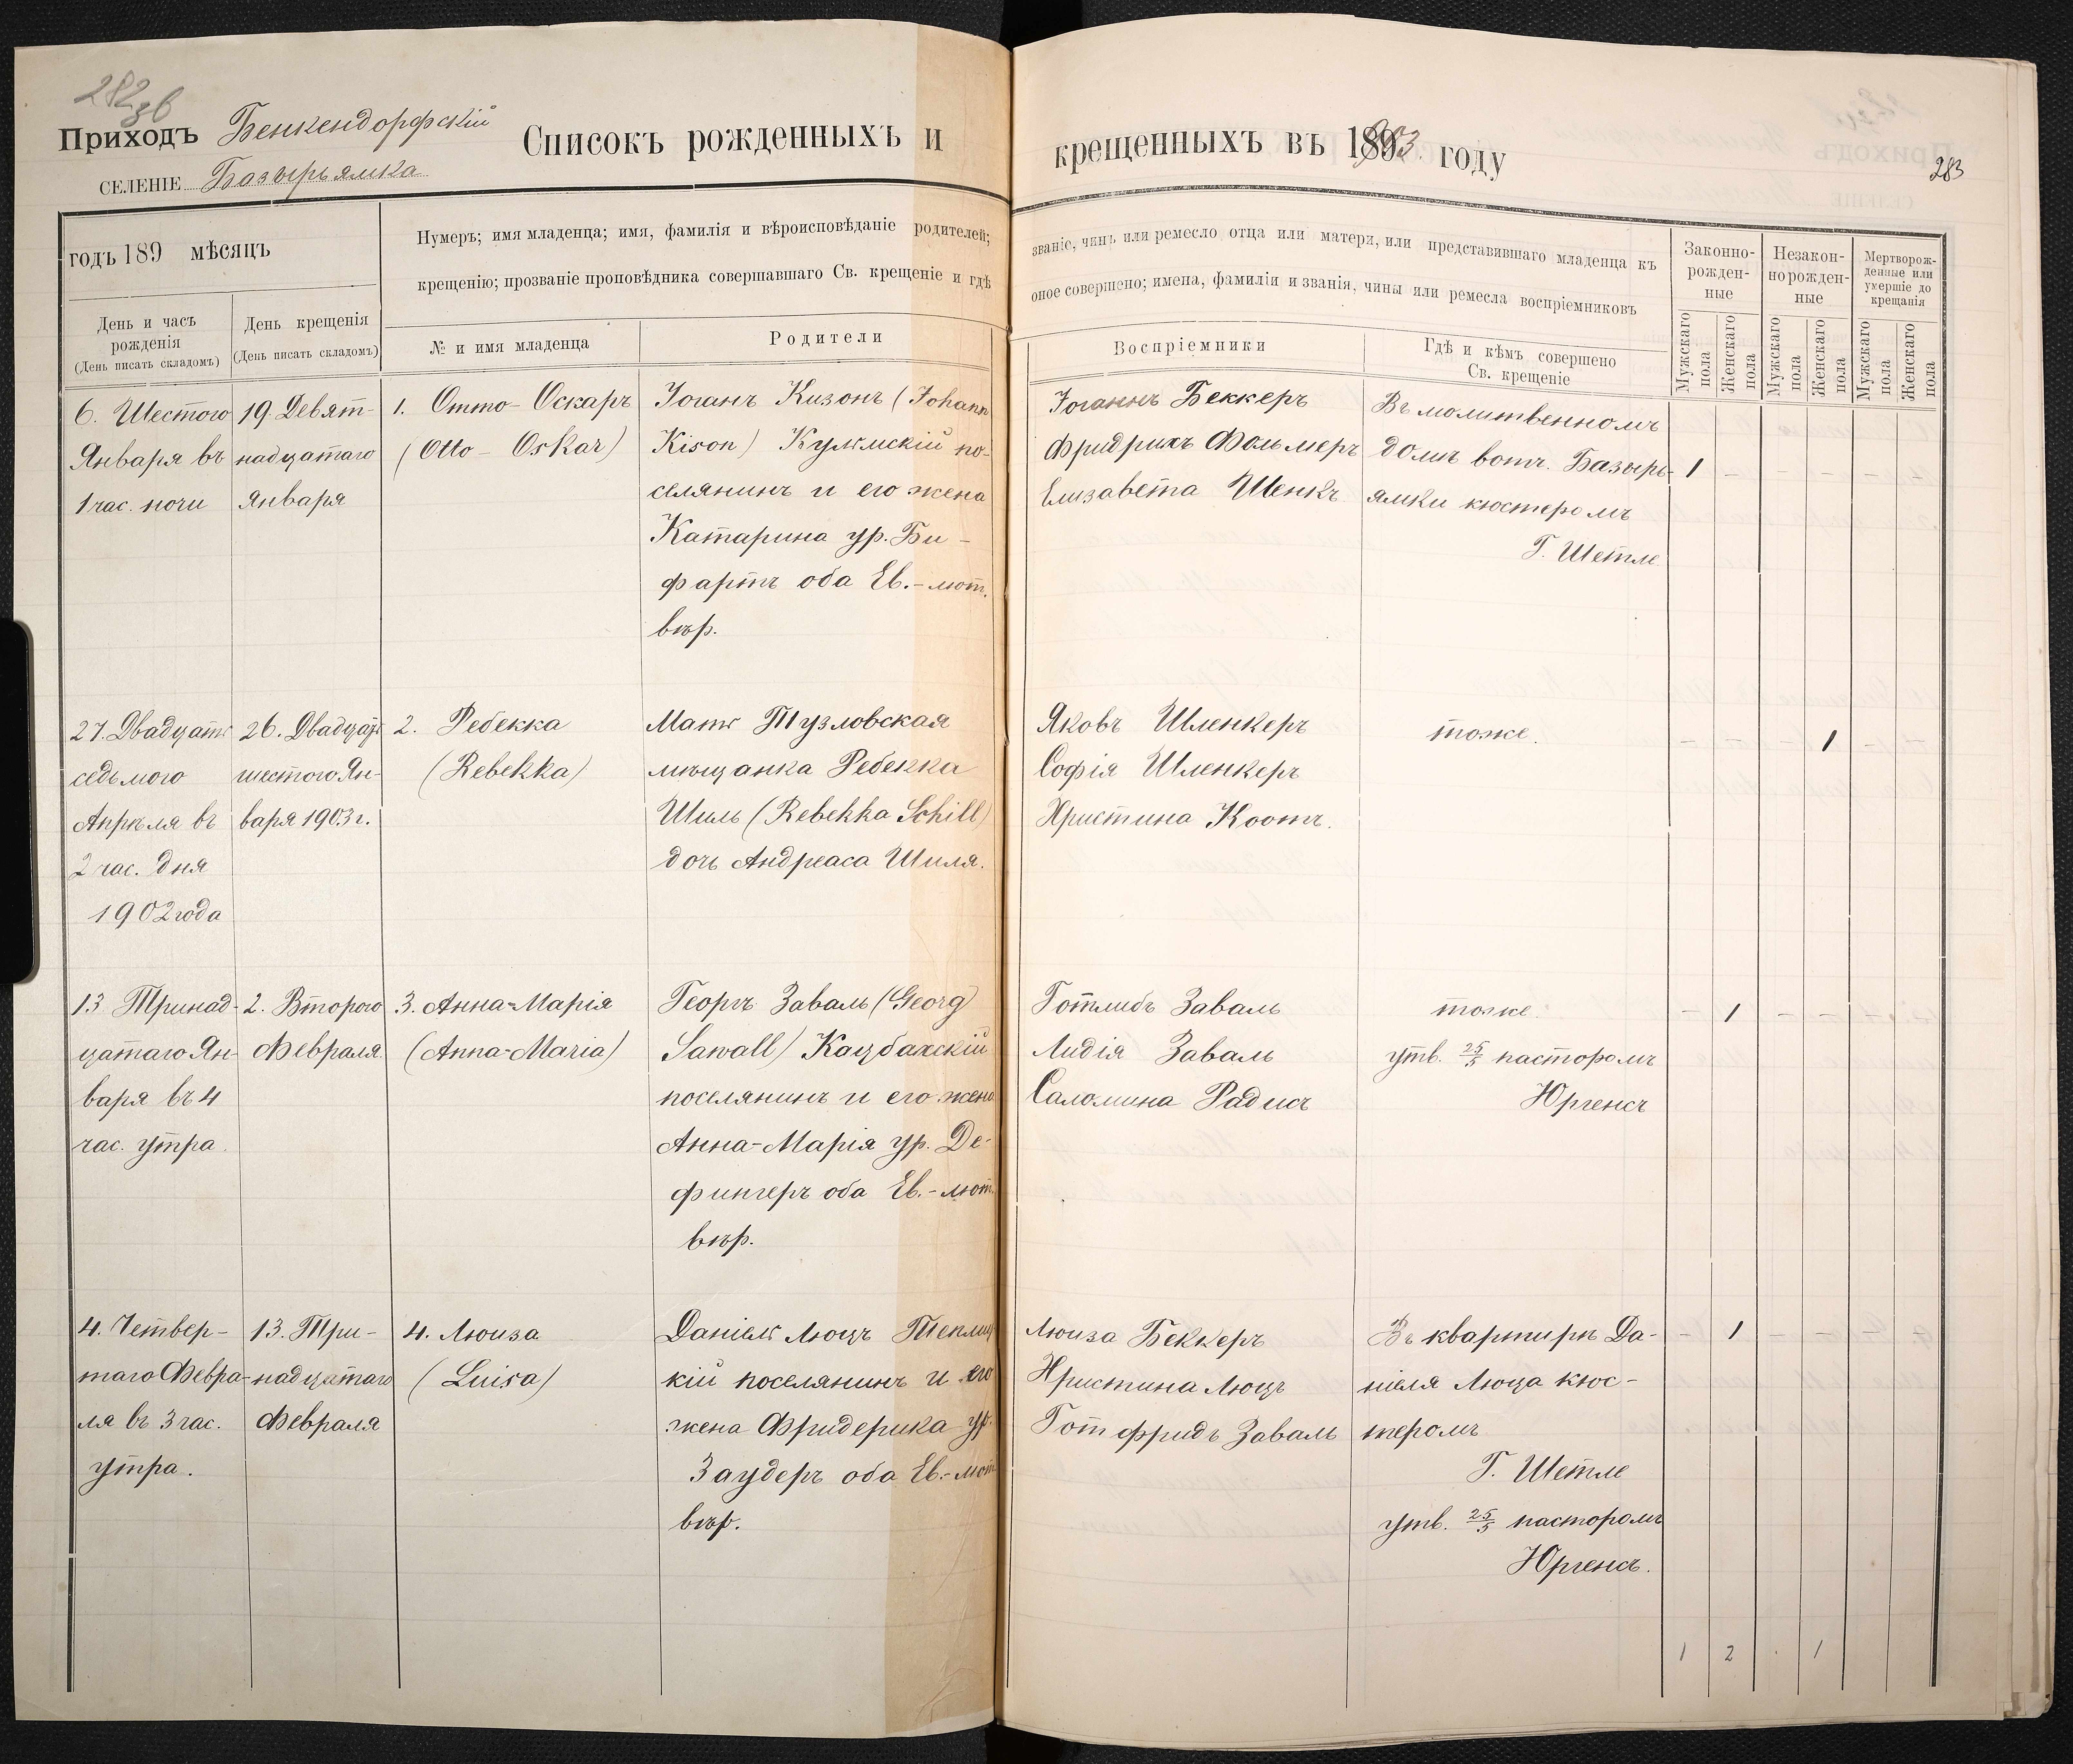 282 зв
Приходъ Бенкендорфскій
селеніе Базырьямка
Списокъ рожденныхъ и
крещенныхъ въ 1903 году
283
годъ 189 мѣсяцъ
Нумеръ; имя младенца; имя, фамилія и вѣроисповѣданіе родителей;
крещенію; прозваніе проповѣдника совершавшаго Св. крещеніе и гдѣ
званіе, чинъ или ремесло отца или матери, или представившаго младенца къ
оное совершено; имена, фамиліи и званія, чины или ремесла воспріемниковъ
День и часъ
рожденія
(День писать складомъ)
День крещенія
(День писать складомъ)
№ и имя младенца
Родители
Воспріемники
Гдѣ и кѣмъ совершено
Св. крещеніе
Законно-
рожден-
ные
Незакон-
норожден-
ные
Мертворож-
денные или
умершіе до
крещанія
Мужскаго
пола
Женскаго
пола
Мужскаго
пола
Женскаго
пола
Мужскаго
пола
Женскаго
пола
6. Шестого
Января въ
1 час. ночи
19. Девят-
надцатаго
Января
1. Отто-Оскаръ
(Otto-Oskar)
Іоганъ Кизонъ (Johann
Kison) Кулмскій по-
селянинъ и его жена
Катарина ур. Би-
фартъ оба Ев.-лют.
вѣр.
Іоганнъ Беккеръ
Фридрихъ Фольмеръ
Елизавета Шенкъ
Въ молитвенномъ
домѣ вотч. Базырь-
ямки кюстеромъ
Г. Шетле
1 – – – – –
27. Двадцать
седьмого
Апрѣля въ
2 час. дня
1902 года
26. Двадцать
шестого Ян-
варя 1903 г.
2. Ребекка
(Rebekka)
Мать Тузловская
мѣщанка Ребекка
Шиль (Rebekka Schill)
дочь Андреаса Шиля.
Яковъ Шленкеръ
Софія Шленкеръ
Христина Коотъ.
тоже.
– – – 1 –
13. Тринад-
цатаго Ян-
варя въ 4
час. утра.
2. Второго
Февраля
3. Анна-Марія
(Anna-Maria)
Георгъ Заваль (Georg
Sawall) Кацбахскій
поселянинъ и его жена
Анна-Марія ур. Де-
фингеръ оба Ев.-лют.
вѣр.
Готлибъ Заваль
Лидія Заваль
Саломина Радисъ
тоже.
утв. 25/5 пасторомъ
Юргенсъ
– 1 – – – –
4. Четвер-
таго Февра-
ля въ 3 час.
утра.
13. Три-
надцатаго
Февраля
4. Люиза
(Luisa)
Даніель Люцъ Теплиц
кій поселянинъ и его
жена Фридерика ур.
Заудеръ оба Ев.-лют
вѣр.
Люиза Беккеръ
Христина Люцъ
Готфридъ Заваль
Въ квартирѣ Да-
ніеля Люца кюс-
теромъ
Г. Шетле
утв. 25/5 пасторомъ
Юргенсъ.
– 1 – – – –
1 2 . 1